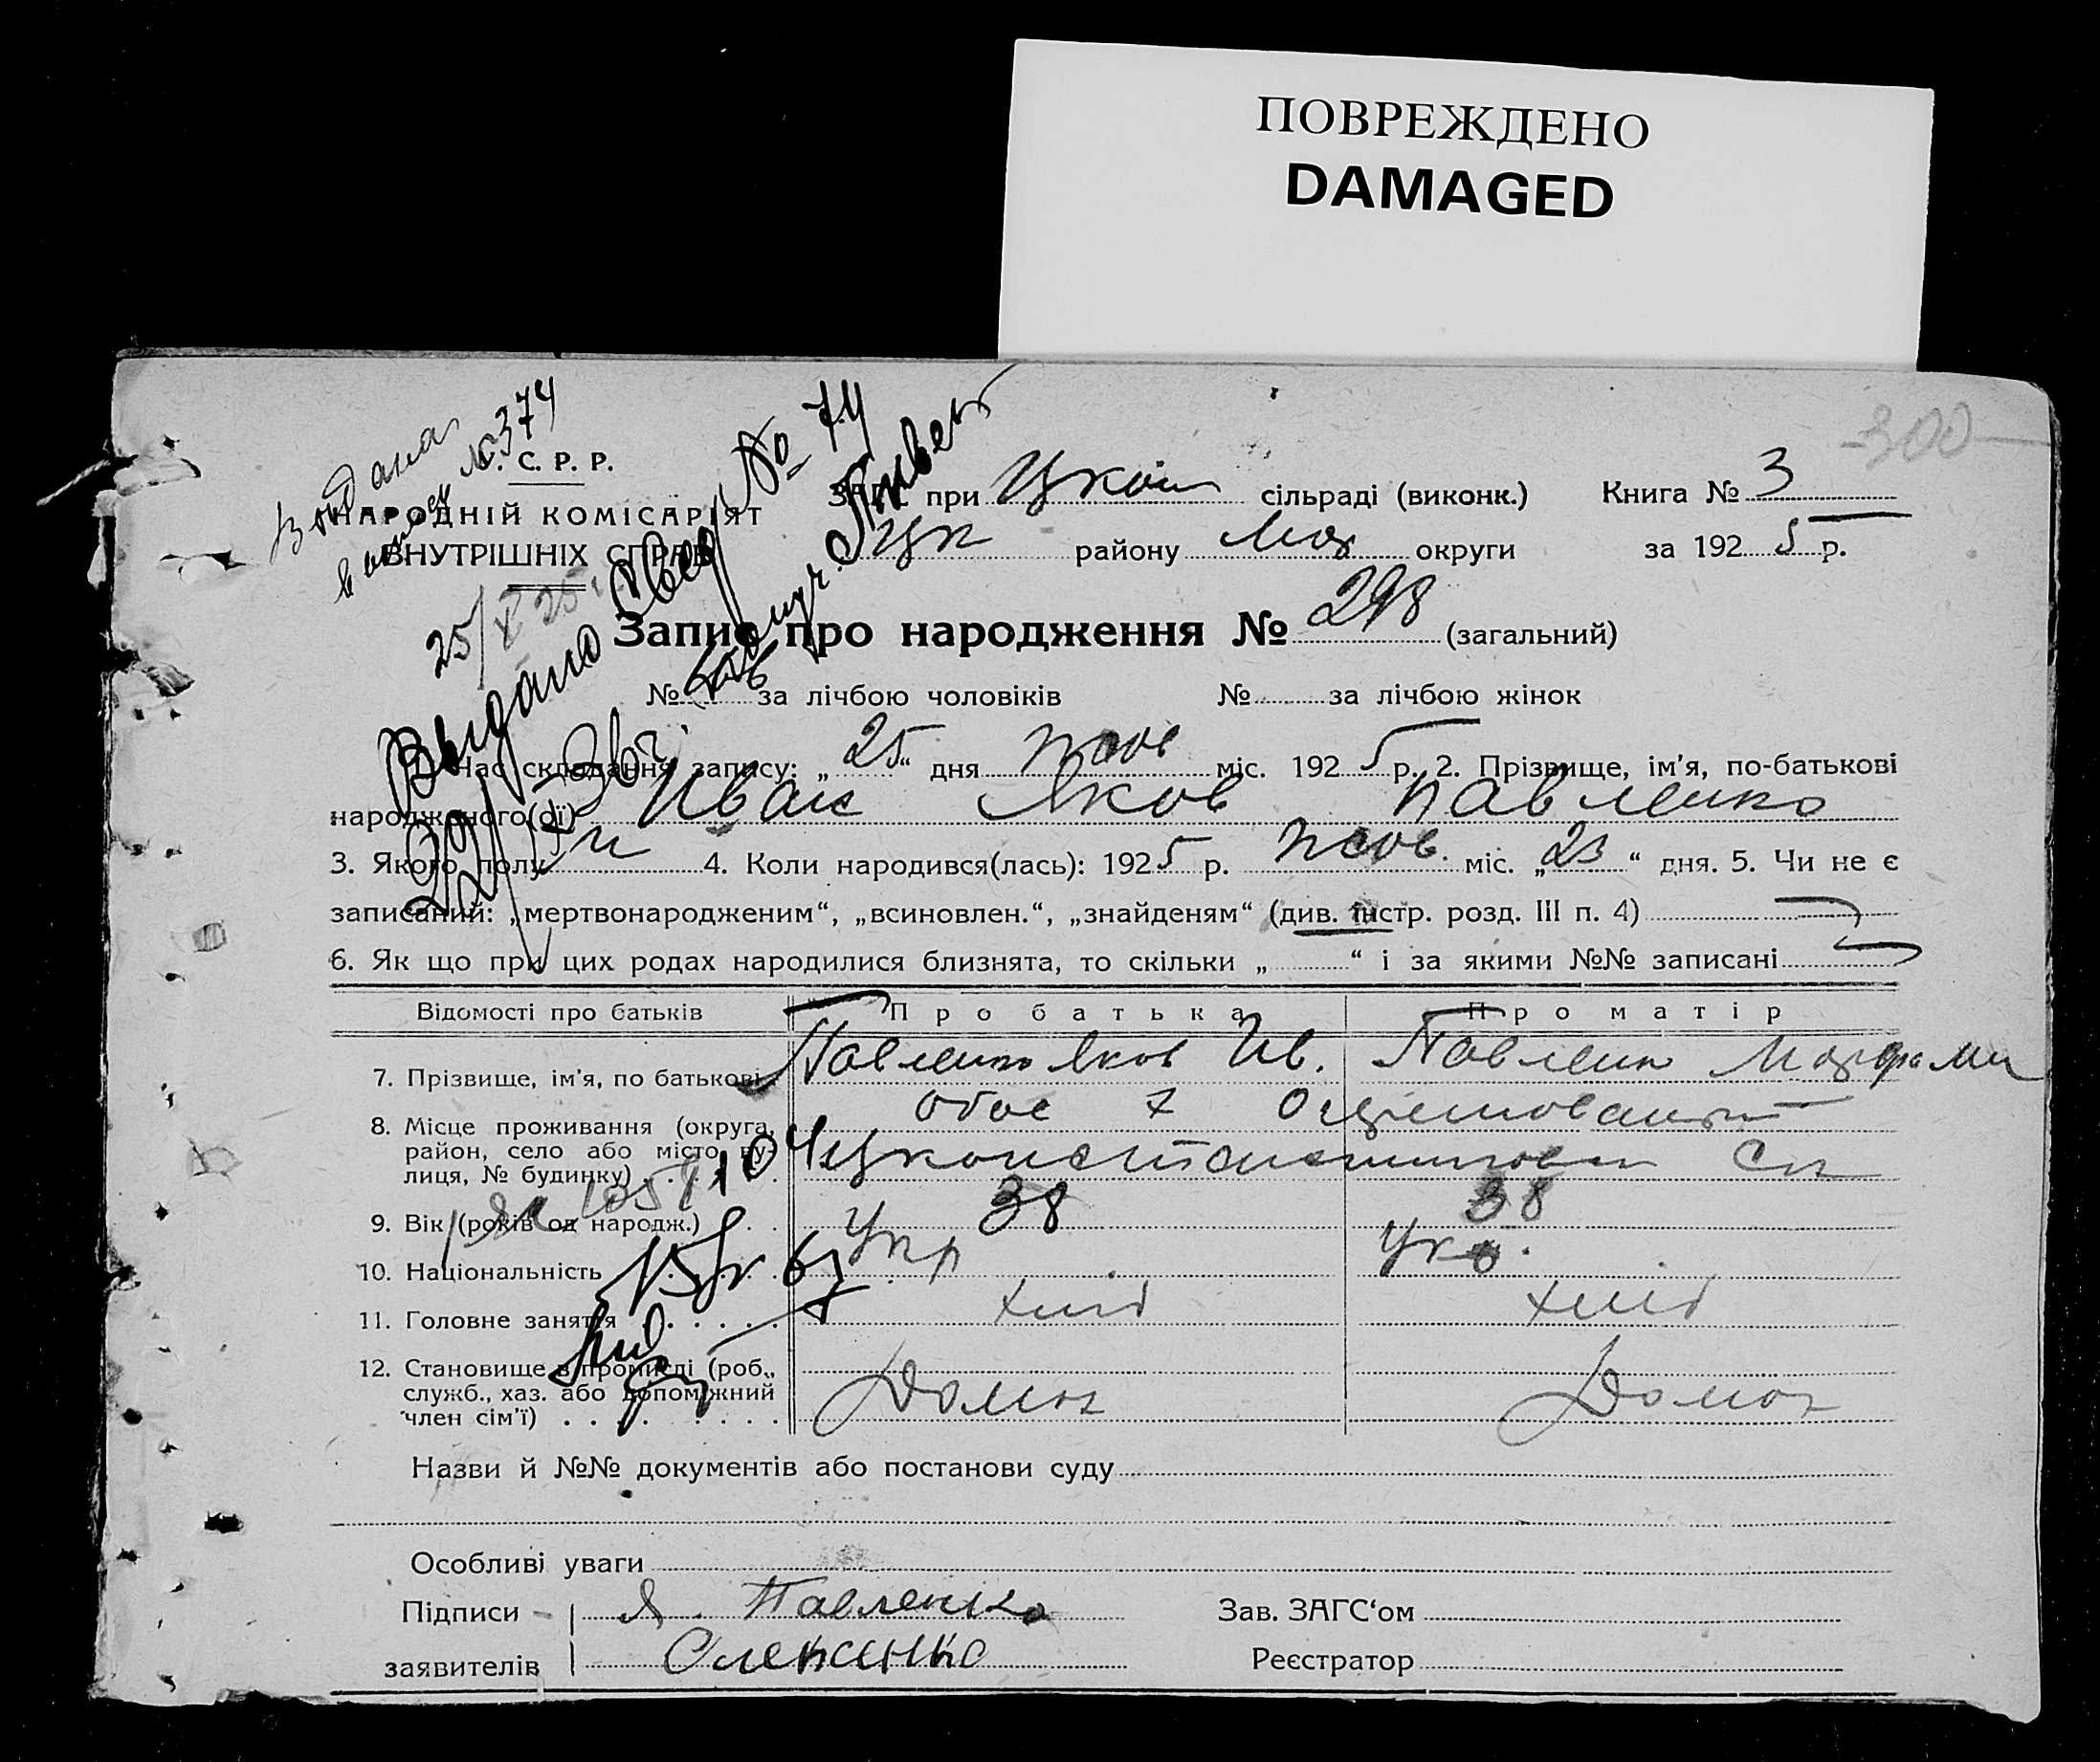 ПОВРЕЖДЕНО
DAMAGED
300
Видана
виписка №374
У. С. Р. Р.
НАРОДНІЙ КОМІСАРІЯТ
ВНУТРІШНІХ СПРАВ
25/X 25
Выдано Свед №74
ЗАГС при сільраді (виконк.) Книга № 3
району округи за 1925 р.
Запис про народження № 298 (загальний)
№ за лічбою чоловіків № за лічбою жінок
1. Час складання запису: „25“ дня жов міс. 1925 р. 2. Прізвище, ім'я, по-батькові
народженого(ої) Иван Яков Павленко
3. Якого полу ч 4. Коли народився(лась): 1925 р. жов. міс. „23“ дня. 5. Чи не є
записаний: „мертвонародженим“, „всиновлен.“, „знайденям“ (див. інстр. розд. III п. 4)
6. Як що при цих родах народилися близнята, то скільки „ “ і за якими №№ записані
Відомості про батьків Про батька Про матір
7. Прізвище, ім'я, по батькові Павленко Яков Ив. Павленко
8. Місце проживання (округа, район, село або місто, вулиця, № будинку)
обоє
9. Вік (років од народж.) 38 38
10. Національність Укр Укр.
11. Головне заняття хліб хліб
12. Становище в промислі (роб., служб., хаз. або допоміжний член сім'ї) Домог Домог
Назви й №№ документів або постанови суду
Особливі уваги
Підписи Я. Павленко Зав. ЗАГС'ом
заявителів Олексенко Реєстратор